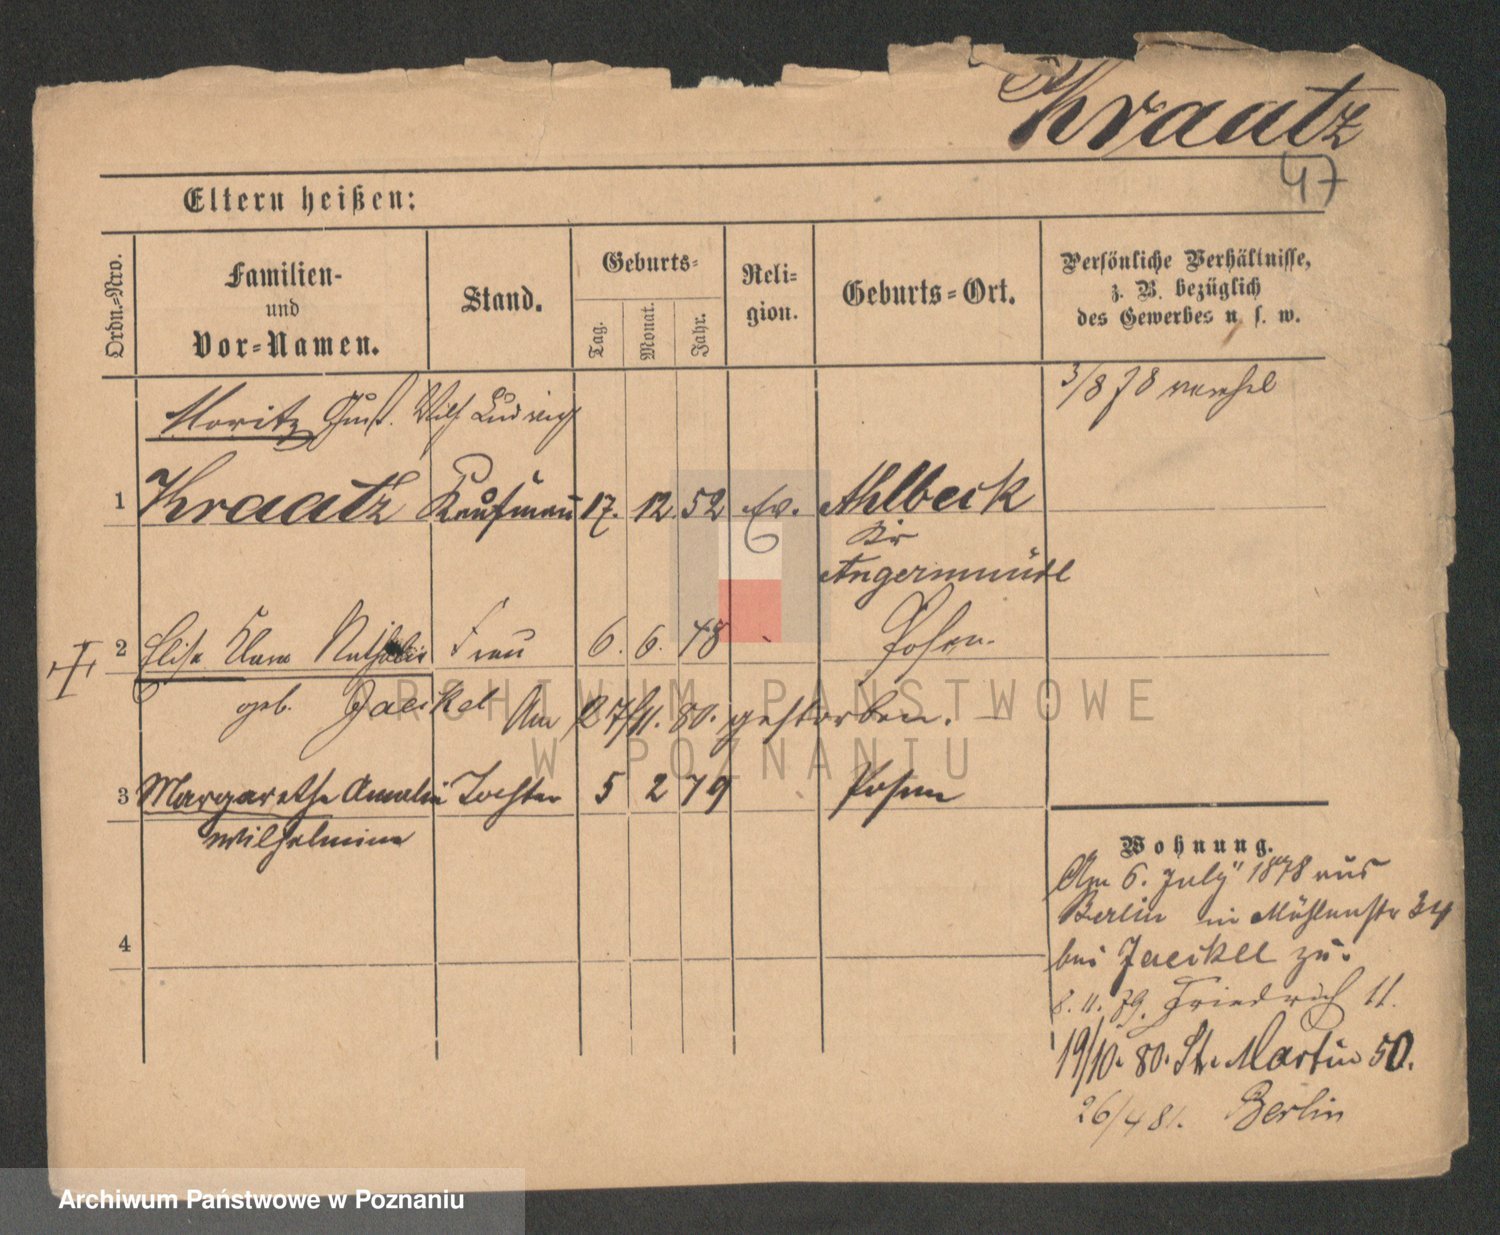 Kraatz
47
Eltern heißen:
Ordn.-Nro.
Familien-
und
Vor-Namen.
Stand.
Geburts-
Tag.
Monat.
Jahr.
Reli-
gion.
Geburts-Ort.
Persönliche Verhältnisse,
z. B. bezüglich
des Gewerbes u. s. w.
3/8 78
Moritz Gust. Wilh Ludwig
1 Kraatz Kaufmann 17. 12. 52 Ev. Ahlbeck
Kr
Angermünde
2 Elise Clara Nathalie Frau 6. 6. 48 Posen.
geb. Jaeckel Am 27/11. 80. gestorben.
3 Margarethe Amalie Tochter 5 2 79 Posen
Wilhelmine
4
Wohnung.
Am 6. July 1878 aus
Berlin in Mühlenstr 34
bei Jaeckel zu.
8. 11. 79. Friedrich 11.
19/10. 80. St. Martin 50.
26/4 81. Berlin
ARCHIWUM PAŃSTWOWE
W POZNANIU
Archiwum Państwowe w Poznaniu